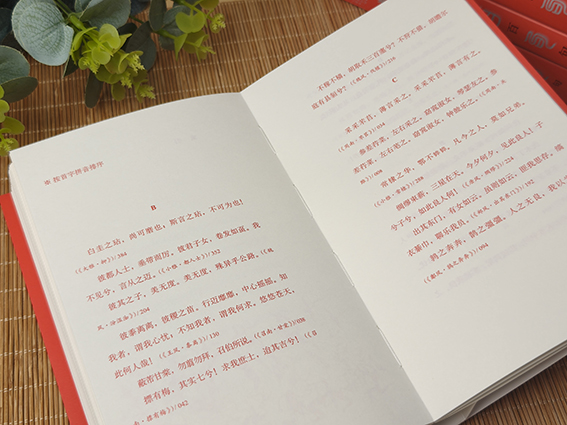 按首字拼音排序
B
白圭之玷，尚可磨也，斯言之玷，不可为也！
《大雅·抑》/384
彼都人士，垂带而厉。彼君子女，卷发如虿。我
不见兮，言从之迈。《小雅·都人士》
彼其之子，美无度。美无度，殊异乎公路。《魏
风·汾沮洳》/204
彼黍离离，彼稷之苗。行迈靡靡，中心摇摇。知
我者，谓我心忧；不知我者，谓我何求。悠悠苍天，
此何人哉！《王风·黍离》/130
蔽芾甘棠，勿翦勿拜，召伯所说。《召南·甘棠》/036
摽有梅，其实七兮！求我庶士，迨其吉兮！《召
南·摽有梅》/042
不稼不穑，胡取禾三百廛兮？不狩不猎，胡瞻尔
庭有县貆兮？《魏风·伐檀》/210
C
采采芣苢，薄言采之。采采芣苢，薄言有之。
《周南·芣苢》/018
参差荇菜，左右采之。窈窕淑女，琴瑟友之。参
差荇菜，左右芼之。窈窕淑女，钟鼓乐之。《周南·关
雎》/008
常棣之华，鄂不韡韡。凡今之人，莫如兄弟。
《小雅·常棣》/288
绸缪束薪，三星在天。今夕何夕，见此良人！子
兮子兮，如此良人何！《唐风·绸缪》/224
出其东门，有女如云。虽则如云，匪我思存。缟
衣綦巾，聊乐我员。《郑风·出其东门》/192
鹑之奔奔，鹊之彊彊。人之无良，我以
《鄘风·鹑之奔奔》/094